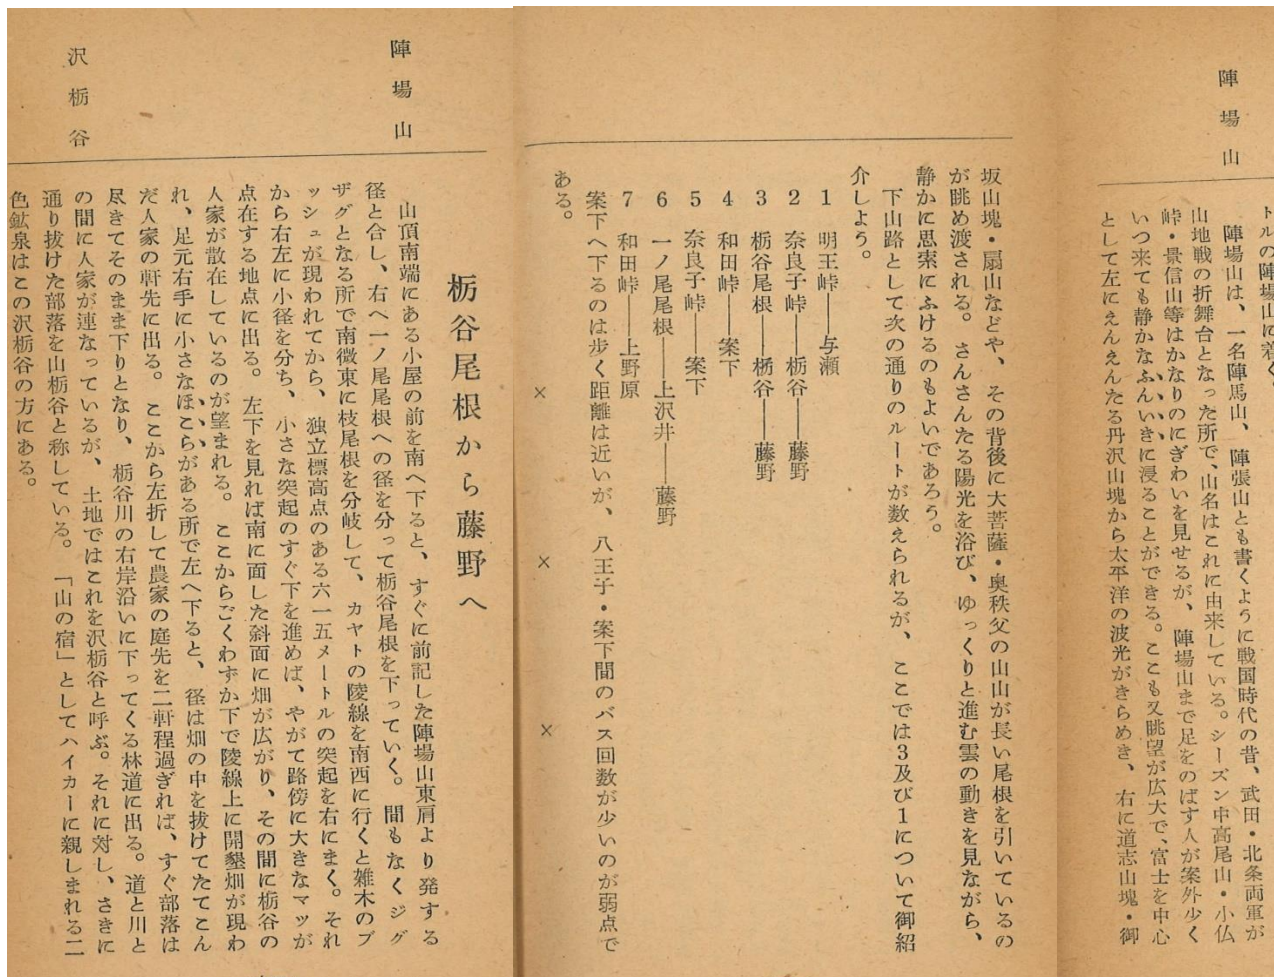 陣場山
トルの陣場山に着く。
陣場山は、一名陣馬山、陣張山とも書くように戦国時代の昔、武田・北条両軍が
山地戦の折舞台となった所で、山名はこれに由来している。シーズン中高尾山・小仏
峠・景信山等はかなりのにぎわいを見せるが、陣場山まで足をのばす人が案外少く
いつ来ても静かなふんいきに浸ることができる。ここも又眺望が広大で、富士を中心
として左にえんえんたる丹沢山塊から太平洋の波光がきらめき、右に道志山塊・御
坂山塊・扇山などや、その背後に大菩薩・奥秩父の山山が長い尾根を引いているの
が眺め渡される。さんさんたる陽光を浴び、ゆっくりと進む雲の動きを見ながら、
静かに思索にふけるのもよいであろう。
下山路として次の通りのルートが数えられるが、ここでは3及び1について御紹
介しよう。
1 明王峠――与瀬
2 奈良子峠――栃谷――藤野
3 栃谷尾根――栃谷――藤野
4 和田峠――案下
5 奈良子峠――案下
6 一ノ尾尾根――上沢井――藤野
7 和田峠――上野原
案下へ下るのは歩く距離は近いが、八王子・案下間のバス回数が少いのが弱点で
ある。
× × ×
陣場山
栃谷尾根から藤野へ
山頂南端にある小屋の前を南へ下ると、すぐに前記した陣場山東肩より発する
径と合し、右へ一ノ尾尾根への径を分って栃谷尾根を下っていく。間もなくジグ
ザグとなる所で南微東に枝尾根を分岐して、カヤトの陵線を南西に行くと雑木のブ
ッシュが現われてから、独立標高点のある六一五メートルの突起を右にまく。それ
から右左に小径を分ち、小さな突起のすぐ下を進めば、やがて路傍に大きなマツが
点在する地点に出る。左下を見れば南に面した斜面に畑が広がり、その間に栃谷の
人家が散在しているのが望まれる。ここからごくわずか下で陵線上に開墾畑が現わ
れ、足元右手に小さなほこらがある所で左へ下ると、径は畑の中を抜けてたてこん
だ人家の軒先に出る。ここから左折して農家の庭先を二軒程過ぎれば、すぐ部落は
尽きてそのまま下りとなり、栃谷川の右岸沿いに下ってくる林道に出る。道と川と
の間に人家が連なっているが、土地ではこれを沢栃谷と呼ぶ。それに対し、さきに
通り抜けた部落を山栃谷と称している。「山の宿」としてハイカーに親しまれる二
色鉱泉はこの沢栃谷の方にある。
沢栃谷